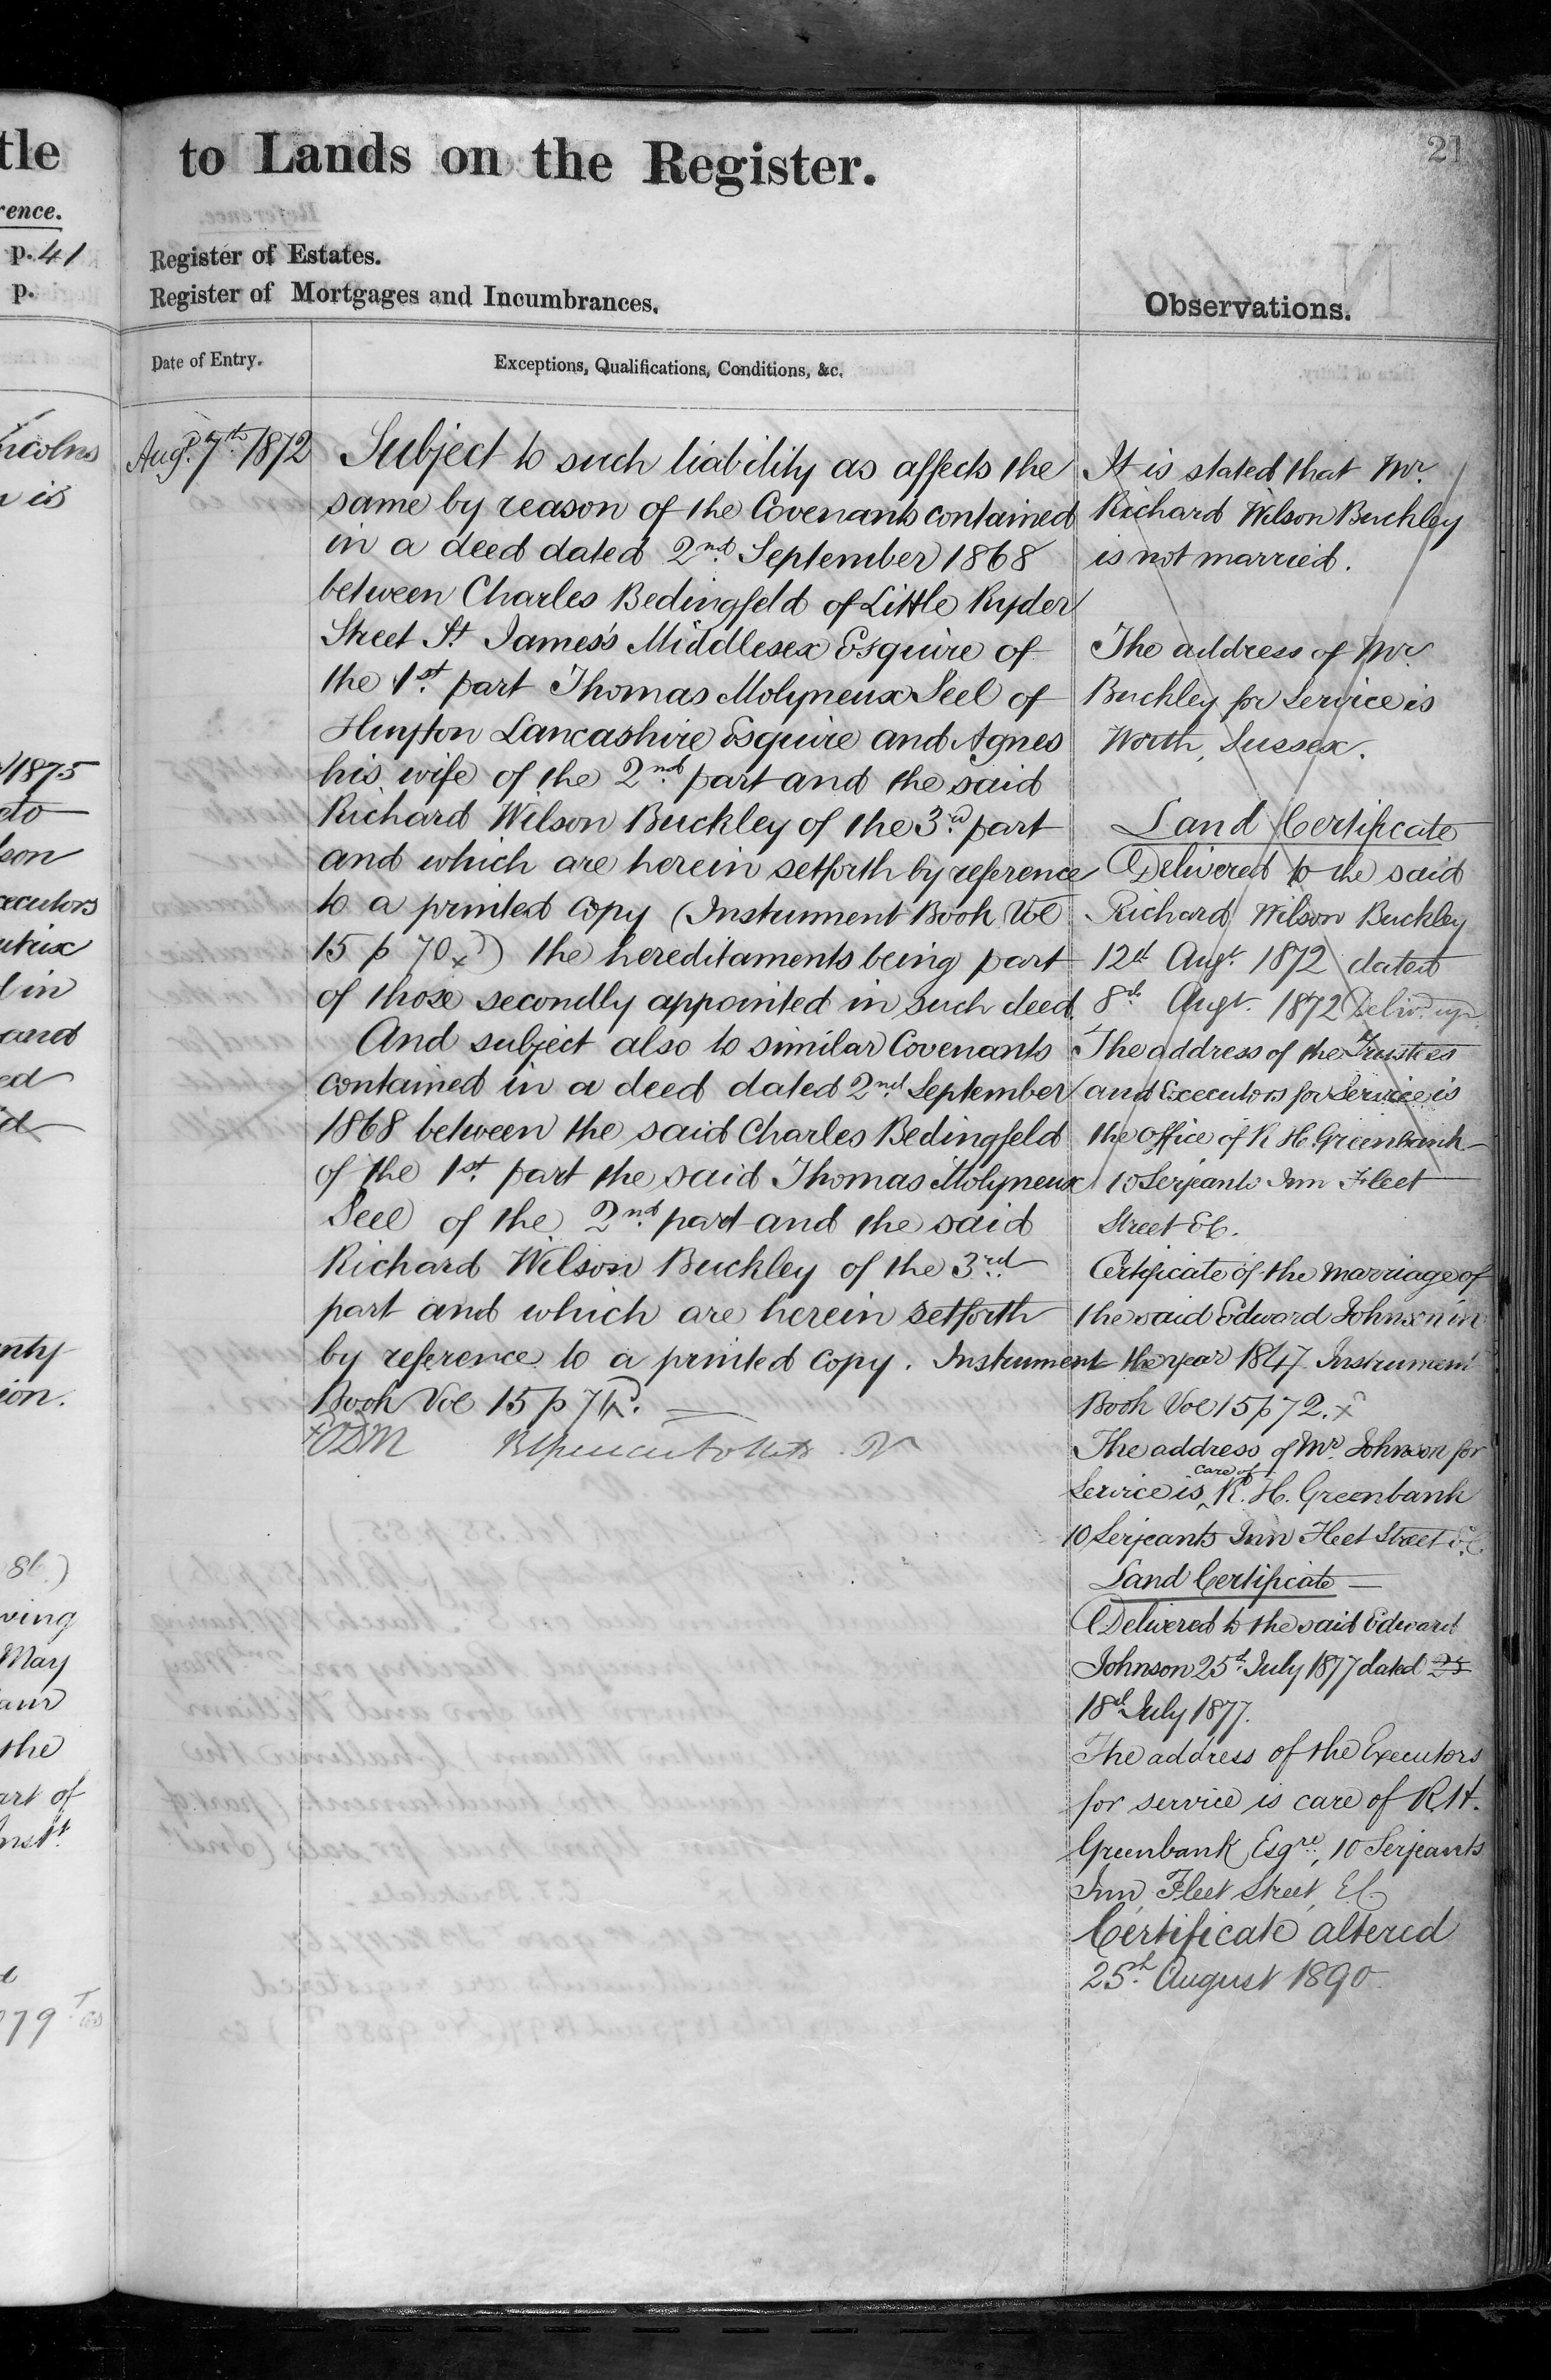 tle
rence.
p. 41
p.
ncolns
n is
1875
cto
son
xecutors
utrix
l in
and
ed
id
nty
ion.
86.)
ving
May
am
the
art of
Inst^t
079
to Lands on the Register.
21
Register of Estates.
Register of Mortgages and Incumbrances.
Observations.
Date of Entry.
Exceptions, Qualifications, Conditions, &c.
Aug^t. 7^th 1872
Subject to such liability as affects the
same by reason of the Covenants contained
in a deed dated 2^nd September 1868
between Charles Bedingfeld of Little Ryder
Street St. James's Middlesex Esquire of
the 1^st part Thomas Molyneux Seel of
Huyton Lancashire Esquire and Agnes
his wife of the 2^nd part and the said
Richard Wilson Buckley of the 3^rd part
and which are herein setforth by reference
to a printed copy (Instrument Book Vol
15 p 70 x) the hereditaments being part
of those secondly appointed in such deed.
And subject also to similar Covenants
contained in a deed dated 2^nd September
1868 between the said Charles Bedingfeld
of the 1^st part the said Thomas Molyneux
Seel of the 2^nd part and the said
Richard Wilson Buckley of the 3^rd
part and which are herein setforth
by reference to a printed copy. Instrument
Book Vol 15 p 71
It is stated that Mr.
Richard Wilson Buckley
is not married.
The address of Mr.
Buckley for Service is
Worth, Sussex.
Land Certificate
Delivered to the said
Richard Wilson Buckley
12^th Aug^t. 1872 dated
8^th Aug^t. 1872 Deliv^d. up.
The address of the Trustees
and Executors for Service is
the office of R H Greenbank
10 Serjeants Inn Fleet
Street E C.
Certificate of the marriage of
the said Edward Johnson in
the year 1847 Instrument
Book Vol 15 p 72. x
The address of Mr. Johnson for
Service is care of R. H. Greenbank
10 Serjeants Inn Fleet Street E.C.
Land Certificate —
Delivered to the said Edward
Johnson 25^th July 1877 dated 25
18^th July 1877.
The address of the Executors
for service is care of R H.
Greenbank Esq^re, 10 Serjeants
Inn, Fleet Street, E C
Certificate altered
25^th August 1890.